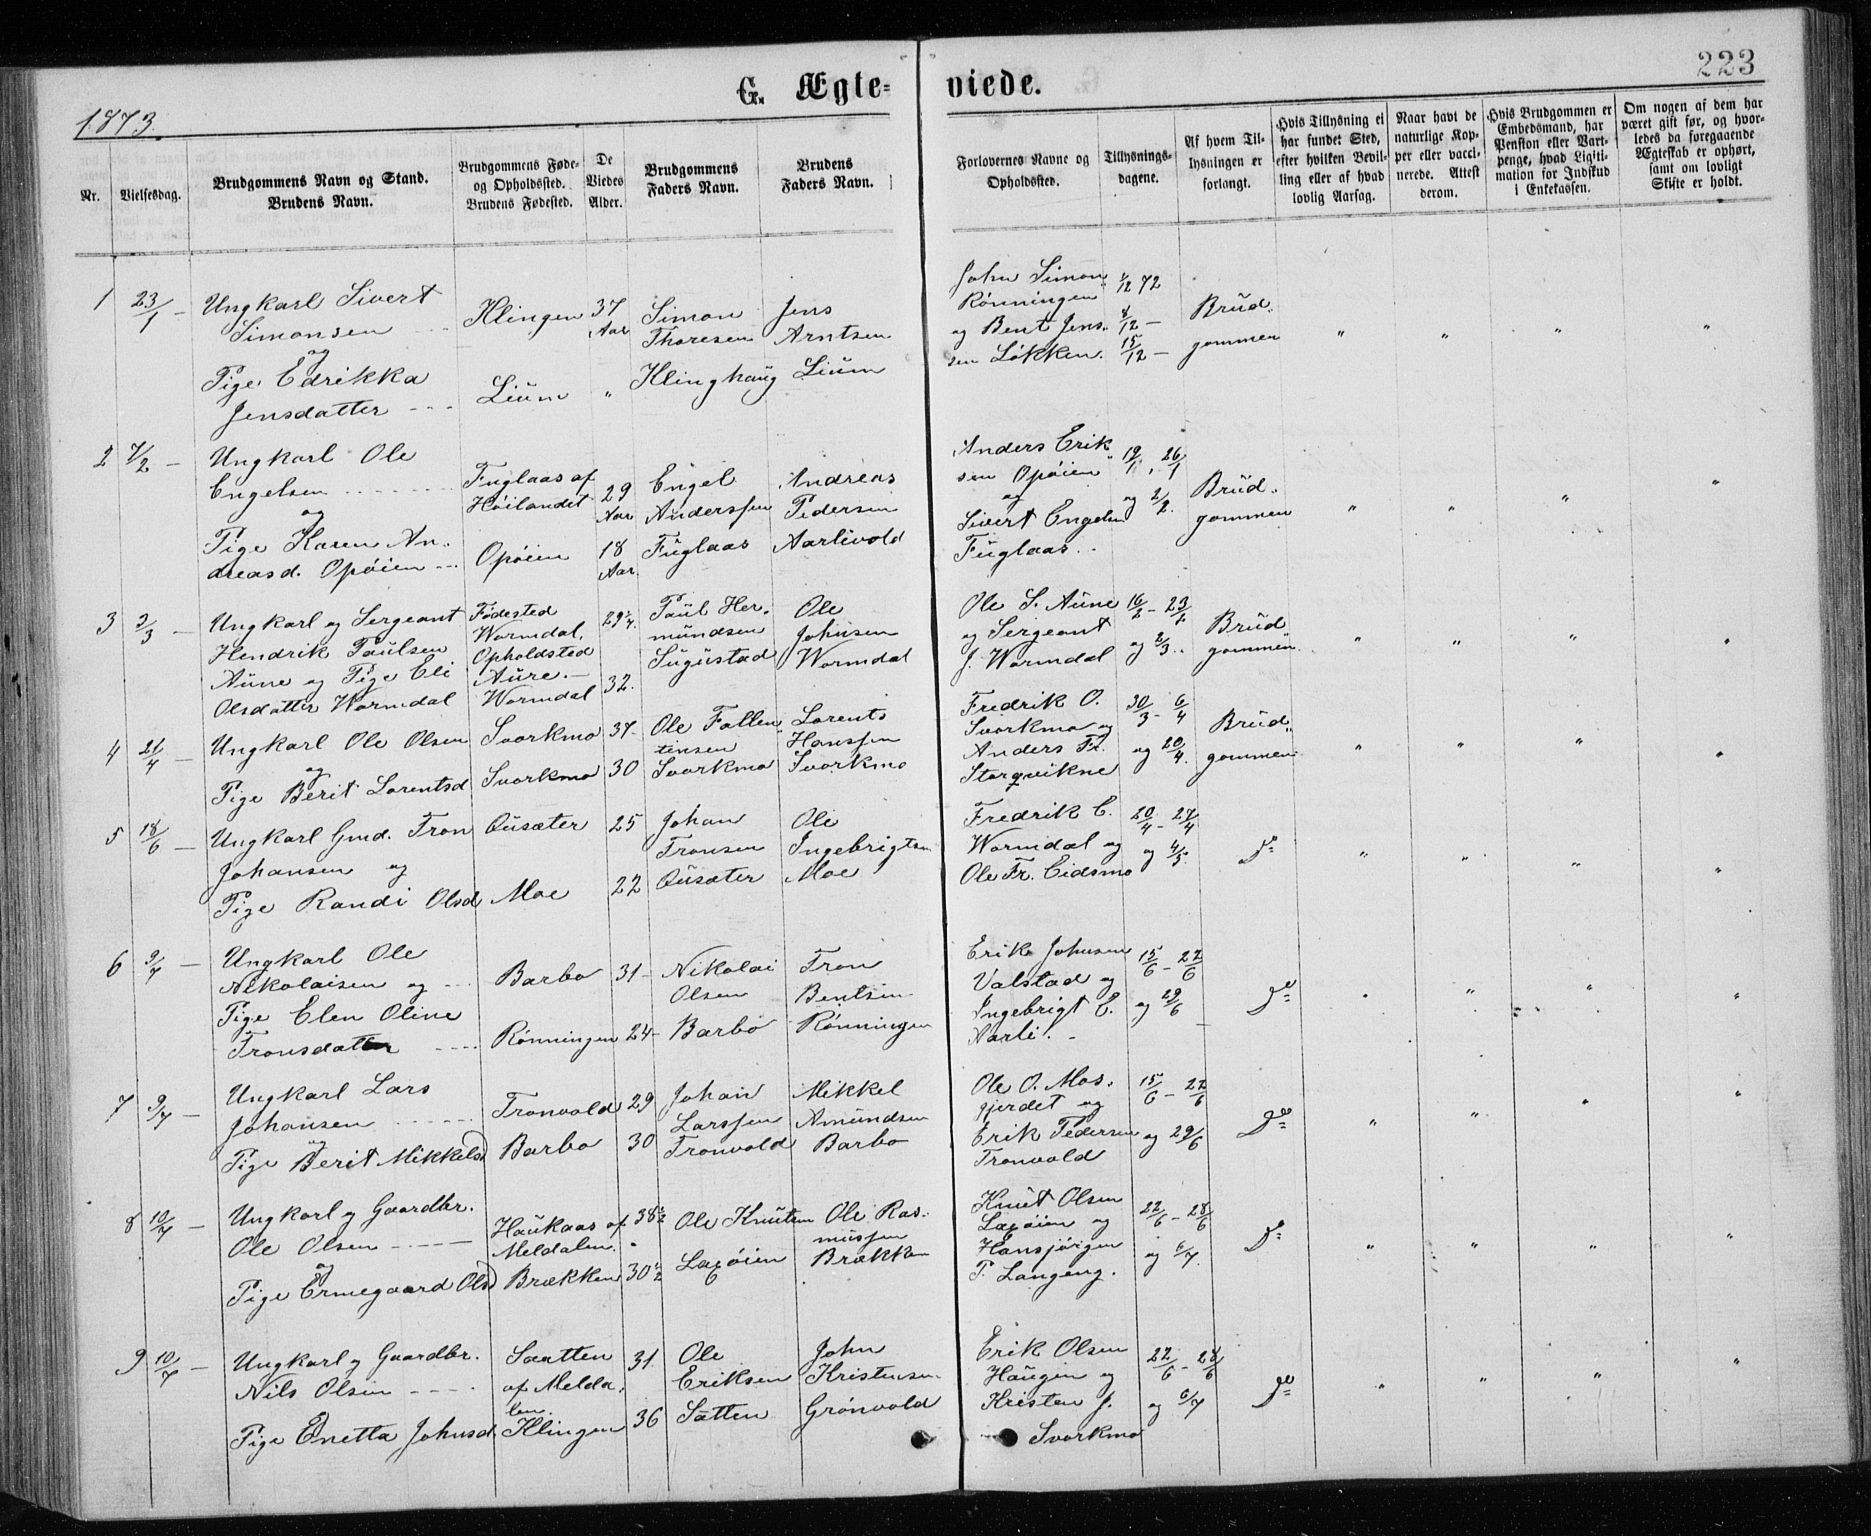 223
G. Ægte= viede.
1873.
Nr.
Vielsesdag.
Brudgommens Navn og Stand.
Brudens Navn.
Brudgommens Føde-
og Opholdssted.
Brudens Fødested.
De
Viedes
Alder.
Brudgommens
Faders Navn.
Brudens
Faders Navn.
Forlovernes Navne og
Opholdssted.
Tillysnings-
dagene.
Af hvem Til-
lysningen er
forlangt.
Hvis Tillysning ei
har fundet Sted,
efter hvilken Bevil-
ling eller af hvad
lovlig Aarsag.
Naar havt de
naturlige Kop-
per eller vacci-
nerede. Attest
derom.
Hvis Brudgommen er
Embedsmand, har
Pension eller Vart-
penge, hvad Ligiti-
mation for Indskud
i Enkekassen.
Om nogen af dem har
været gift før, og hvor-
ledes da foregaaende
Ægteskab er ophørt,
samt om lovligt
Skifte er holdt.
1 23/1 –
Ungkarl Sivert
Simonsen
og
Pige Edrikka
Jensdatter
Klingen
Lium
37
Aar
"
Simon
Thoresen
Klinghaug
Jens
Arntsen
Lium
John Simon"
Rønningen
og Bent Jens-
sen Løkken.
1/12 72
8/12 –
15/12 –
Brud-
gommen
" " " "
2 7/2 –
Ungkarl Ole
Engelsen
og
Pige Karen An-
dreasd. Opøien
Fuglaas af
Høilandet
Opøien
29
Aar
18
Aar.
Engel
Anderssen
Fuglaas
Andreas
Pedersen
Aarlivold
Anders Erik
sen Opøien
og
Sivert Engelsn
Fuglaas.
19/1, 26/1
og 2/2.
Brud-
gommen
" " " "
3 3/3 –
Ungkarl og Sergeant
Hendrik Paulsen
Aune og Pige Eli
Olsdatter Wormdal
Fødested
Wormdal,
Opholdsted
Aure.
Wormdal
29¼.
32.
Paul Her-
mundsen
Sugustad
Ole
Johnsen
Wormdal
Ole S. Aune
og Sergeant
J. Wormdal
16/2 – 23/2
og 2/3.
Brud
gommen
" " " "
4 21/4 –
Ungkarl Ole Olsen
og
Pige Berit Lorentsd
Svorkmo
Svorkmo
37
30
Ole Fallen
tinsen
Svorkmo
Lorents
Hanssen
Svorkmo
Fredrik O.
Svorkmo og
Anders Fr.
Storqvikne
30/3 – 6/4
og 20/4.
Brud"
gommen
" " " "
5 18/6 –
Ungkarl Gmd. Tron
Johansen og
Pige Randi Olsd
Ousæter
Moe
25
22
Johan
Tronsen
Ousæter
Ole
Ingebrigtsen
Moe
Fredrik E.
Wormdal og
Ole Fr. Eidsmo
20/4 – 27/4
og 4/5.
do
" " " "
6 9/7 –
Ungkarl Ole
Nikolaisen og
Pige Elen Oline
Tronsdatter
Barbo
Rønningen
31
24
Nikolai
Olsen
Barbo
Tron
Bentsen
Rønningen
Erik Johnsen
Valstad og
Ingebrigt E.
Aarli.
15/6 – 22/6
og 29/6
do
" " " "
7 9/7 –
Ungkarl Lars
Johansen
og
Pige Berit Mikkelsd
Tronvold
Barbo
29
30
Johan
Larssen
Tronvold
Mikkel
Amundsen
Barbo
Ole O. Mos-
gjerdet og
Erik Pedersen
Tronvold
15/6 – 22/6
og 29/6
do
" " " "
8 10/7 –
Ungkarl og Gaardbr.
Ole Olsen
og
Pige Ermegaard Olsd
Haukaas af
Meldalen.
Brækken
38½
30½
Ole Knutsen
Laxøien
Ole Ras-
mussen
Brækken
Knut Olsen
Laxøien og
Hansjørgen
P. Langeng.
22/6 – 28/6
og 6/7.
do
" " " "
9 10/7 –
Ungkarl og Gaardbr.
Nils Olsen
Pige Enetta Johnsd.
Sætten
af Melda-
len.
Klingen
31
36
Ole
Eriksen
Sætten
John
Kristensen
Grønvold
Erik Olsen
Haugen og
Kristen J.
Svorkmo
22/6 – 28/6
og 6/7
do
" " " "